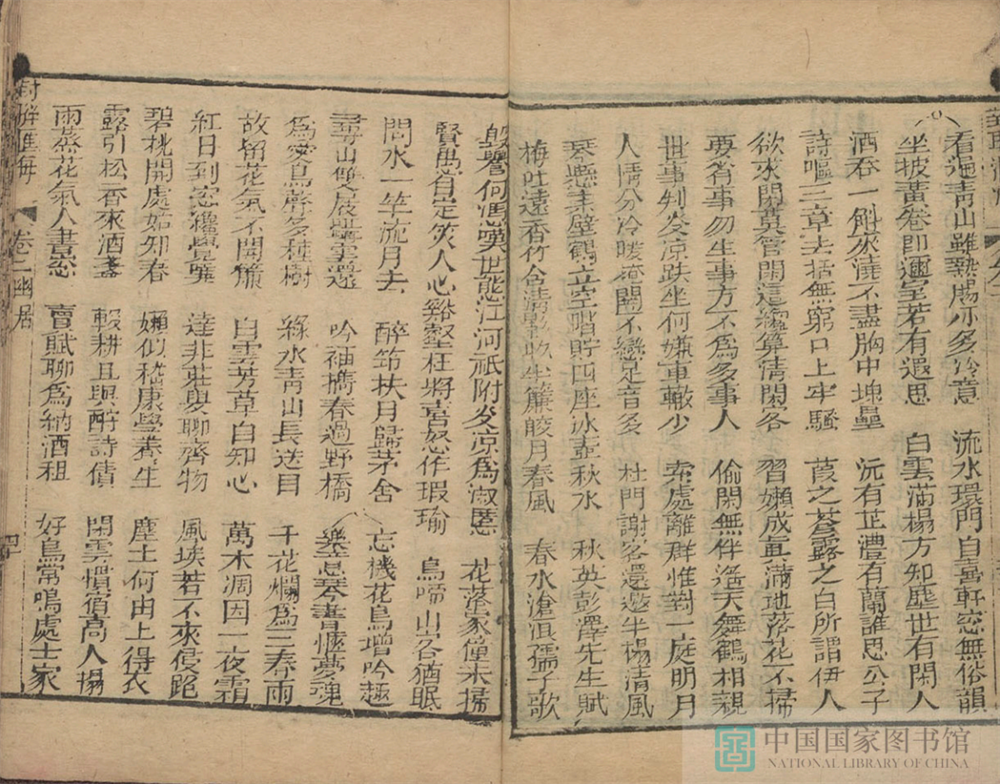 看遍青山雖熱腸亦多冷意　流水環門自喜軒窓無俗韻
坐披黃卷即邇室若有遐思　白雲滿榻方知塵世有閑人
酒吞一斛來澆不盡胸中塊壘　沅有芷澧有蘭誰思公子
詩嘔三章去括無窮口上牢騷　葭之蒼露之白所謂伊人
欲求閑莫管閑這纔算清閑客　習嬾成直滿地落花不掃
要省事勿生事方不為多事人　偷閑無伴滔天舞鶴相親
世事判炎涼趺坐何嫌車轍少　索處離群惟對一庭明月
人情分冷暖掩關不戀足音多　杜門謝客還邀半榻清風
琴懸素壁鶴立空階貯四座冰壺秋水　秋英彭澤先生賦
梅吐遠香竹含清韵半簾皎月春風　春水滄浪孺子歌
毀譽何憑嘆世態江河祇附炎涼為淑慝　花落家僮未掃
賢愚自定笑人心谿壑枉將喜怒作瑕瑜　鳥啼山客猶眠
問水一竿流月去　醉筇扶月歸茅舍　忘機花鳥增吟趣
尋山雙屐躡雲還　吟袖攜春過野橋　樂意琴書愜夢魂
為愛鳥聲多種樹　綠水青山長送目　千花爛為三春雨
故留花氣不開簾　白雲芳草自知心　萬木凋因一夜霜
紅日到窓纔覺曉　達非莊叟聊齊物　風埃若不來侵路
碧桃開處始知春　嬾似嵇康學養生　塵土何由上得衣
露引松香來酒盞　輟耕且與酬詩債　閑雲慣宿高人榻
雨蒸花氣入書惌　賣賦聊為納酒租　好鳥常鳴處士家
卷二幽居
中国国家图书馆
NATIONAL LIBRARY OF CHINA